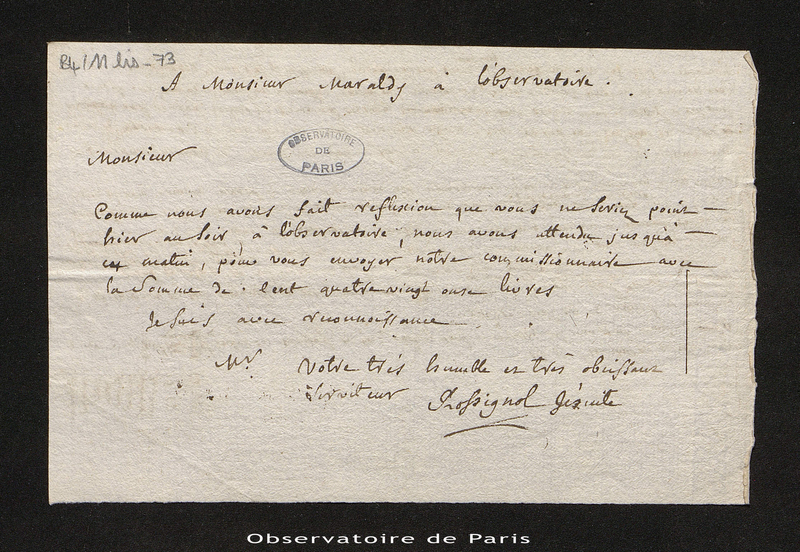 84/11 bis - 73
A Monsieur Maraldy à l'observatoire .
OBSERVATOIRE
DE
PARIS
Monsieur
Comme nous avons fait reflexion que vous ne seriez point
hier au soir, à l'observatoire, nous avons attendu jusqu'à
ce matin, pour vous envoyer notre commissionnaire avec
la somme de cent quatre vingt onse livres
Je suis avec reconnoissance
Mr. Votre très humble et très obeissant
Serviteur Rossignol Jésuite
Observatoire de Paris